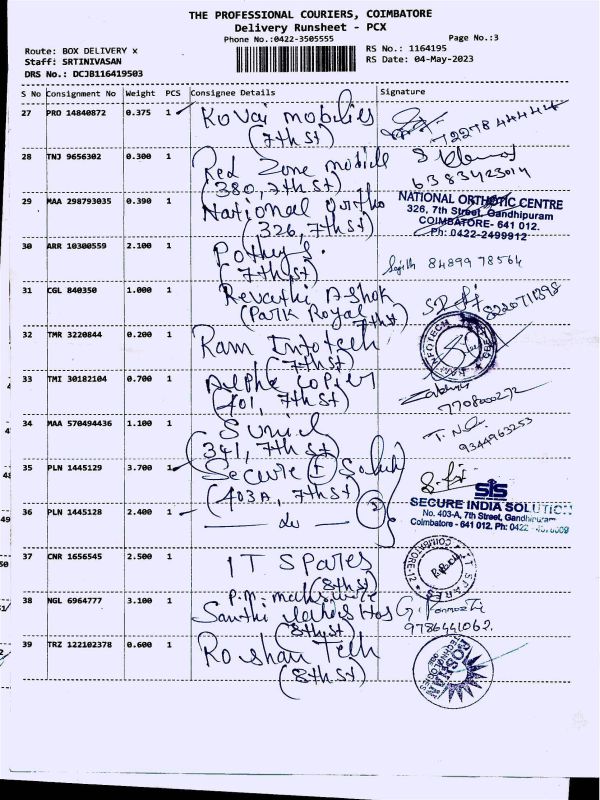 THE PROFESSIONAL COURIERS, COIMBATORE
Delivery Runsheet - PCX
Phone No.:0422-3505555
Page No.:3
Route: BOX DELIVERY x
RS No.: 1164195
Staff: SRTINIVASAN
RS Date: 04-May-2023
DRS No.: DCJB116419503
S No Consignment No Weight PCS Consignee Details Signature
27 PRO 14840872 0.375 1 Kovai mobiles
(7th St)
28 TNJ 9656302 0.300 1 Red Zone mobile
(380, 7th St)
6383423014
29 MAA 298793035 0.390 1 National Ortho
(326, 7th St)
NATIONAL ORTHOTIC CENTRE
326, 7th Street, Gandhipuram
COIMBATORE- 641 012.
Ph: 0422-2499912
30 ARR 10300559 2.100 1 Pothy's.
(7th St)
Sajith 84899 78564
31 CGL 840350 1.000 1 Revathi Ashok
(Park Royal 7th St)
32 TMR 3220844 0.200 1 Ram Infotech
(7th St)
33 TMI 30182104 0.700 1 Alpha Copier
(401, 7th St)
7708000272
34 MAA 570494436 1.100 1 Sunil
(341, 7th St)
9344963253
35 PLN 1445129 3.700 1 Secure I Soluti
(403A, 7th St)
36 PLN 1445128 2.400 1 — do — 2
SIS
SECURE INDIA SOLUTION
No. 403-A, 7th Street, Gandhipuram
Coimbatore - 641 012. Ph: 0422
37 CNR 1656545 2.500 1 IT Spares
(8th St)
I.T. SPARES COIMBATORE-12
38 NGL 6964777 3.100 1 P.M.
Santhi Ladies Hos
(8th St)
9786441062.
39 TRZ 122102378 0.600 1 Roshan Tech
(8th St)